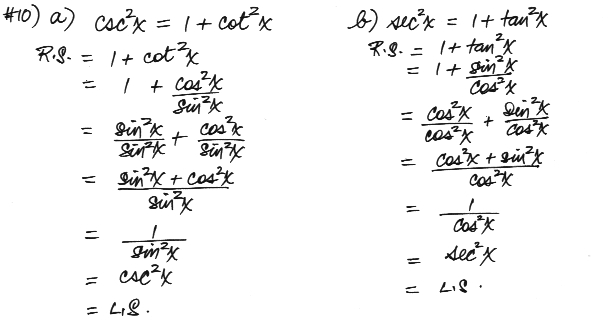 #10) a) csc²x = 1 + cot²x
R.S. = 1 + cot²x
= 1 + cos²x/sin²x
= sin²x/sin²x + cos²x/sin²x
= (sin²x + cos²x)/sin²x
= 1/sin²x
= csc²x
= L.S.
b) sec²x = 1 + tan²x
R.S. = 1 + tan²x
= 1 + sin²x/cos²x
= cos²x/cos²x + sin²x/cos²x
= (cos²x + sin²x)/cos²x
= 1/cos²x
= sec²x
= L.S.